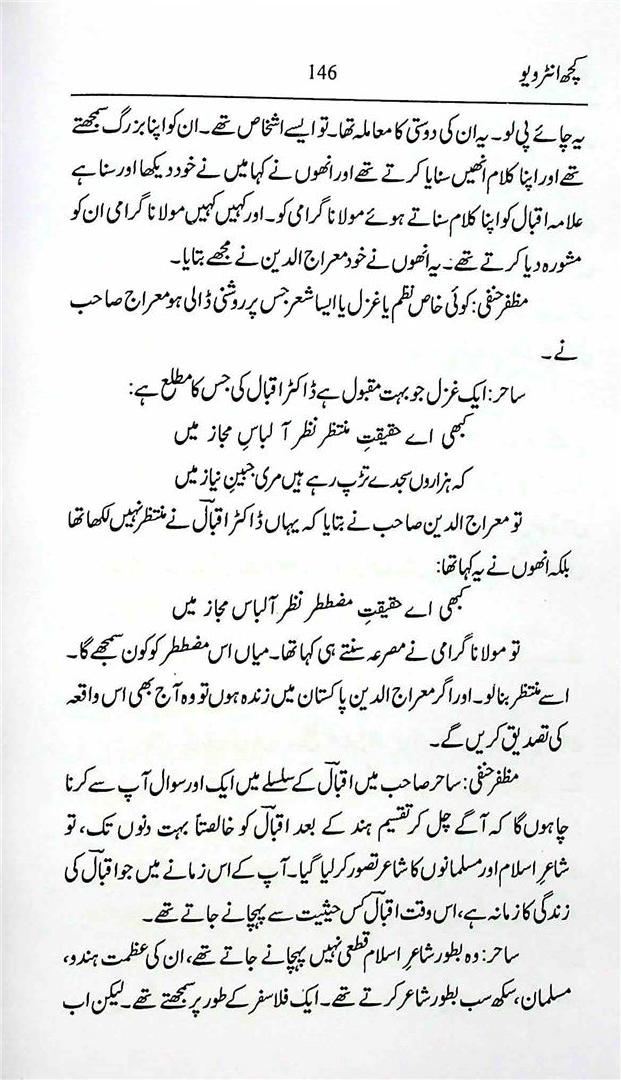 کچھ انٹرویو
146
یہ چائے پی لو۔ یہ ان کی دوستی کا معاملہ تھا۔ تو ایسے اشخاص تھے۔ ان کو اپنا بزرگ سمجھتے
تھے اور اپنا کلام انھیں سنایا کرتے تھے اور انھوں نے کہا میں نے خود دیکھا اور سنا ہے
علامہ اقبال کو اپنا کلام سناتے ہوئے مولانا گرامی کو۔ اور کہیں کہیں مولانا گرامی ان کو
مشورہ دیا کرتے تھے۔ یہ انھوں نے خود معراج الدین نے مجھے بتایا۔
مظفر حنفی: کوئی خاص نظم یا غزل یا ایسا شعر جس پر روشنی ڈالی ہو معراج صاحب
نے۔
ساحر: ایک غزل جو بہت مقبول ہے ڈاکٹر اقبال کی جس کا مطلع ہے:
کبھی اے حقیقتِ منتظر نظر آ لباسِ مجاز میں
کہ ہزاروں سجدے تڑپ رہے ہیں مری جبینِ نیاز میں
تو معراج الدین صاحب نے بتایا کہ یہاں ڈاکٹر اقبالؔ نے منتظر نہیں لکھا تھا
بلکہ انھوں نے یہ کہا تھا:
کبھی اے حقیقتِ مضطر نظر آ لباس مجاز میں
تو مولانا گرامی نے مصرعہ سنتے ہی کہا تھا۔ میاں اس مضطر کو کون سمجھے گا۔
اسے منتظر بنا لو۔ اور اگر معراج الدین پاکستان میں زندہ ہوں تو وہ آج بھی اس واقعہ
کی تصدیق کریں گے۔
مظفر حنفی: ساحر صاحب میں اقبالؔ کے سلسلے میں ایک اور سوال آپ سے کرنا
چاہوں گا کہ آگے چل کر تقسیم ہند کے بعد اقبالؔ کو خالصتاً بہت دنوں تک، تو
شاعرِ اسلام اور مسلمانوں کا شاعر تصور کر لیا گیا۔ آپ کے اس زمانے میں جو اقبالؔ کی
زندگی کا زمانہ ہے، اس وقت اقبالؔ کس حیثیت سے پہچانے جاتے تھے۔
ساحر: وہ بطور شاعرِ اسلام قطعی نہیں پہچانے جاتے تھے، ان کی عظمت ہندو،
مسلمان، سکھ سب بطور شاعر کرتے تھے۔ ایک فلاسفر کے طور پر سمجھتے تھے۔ لیکن اب